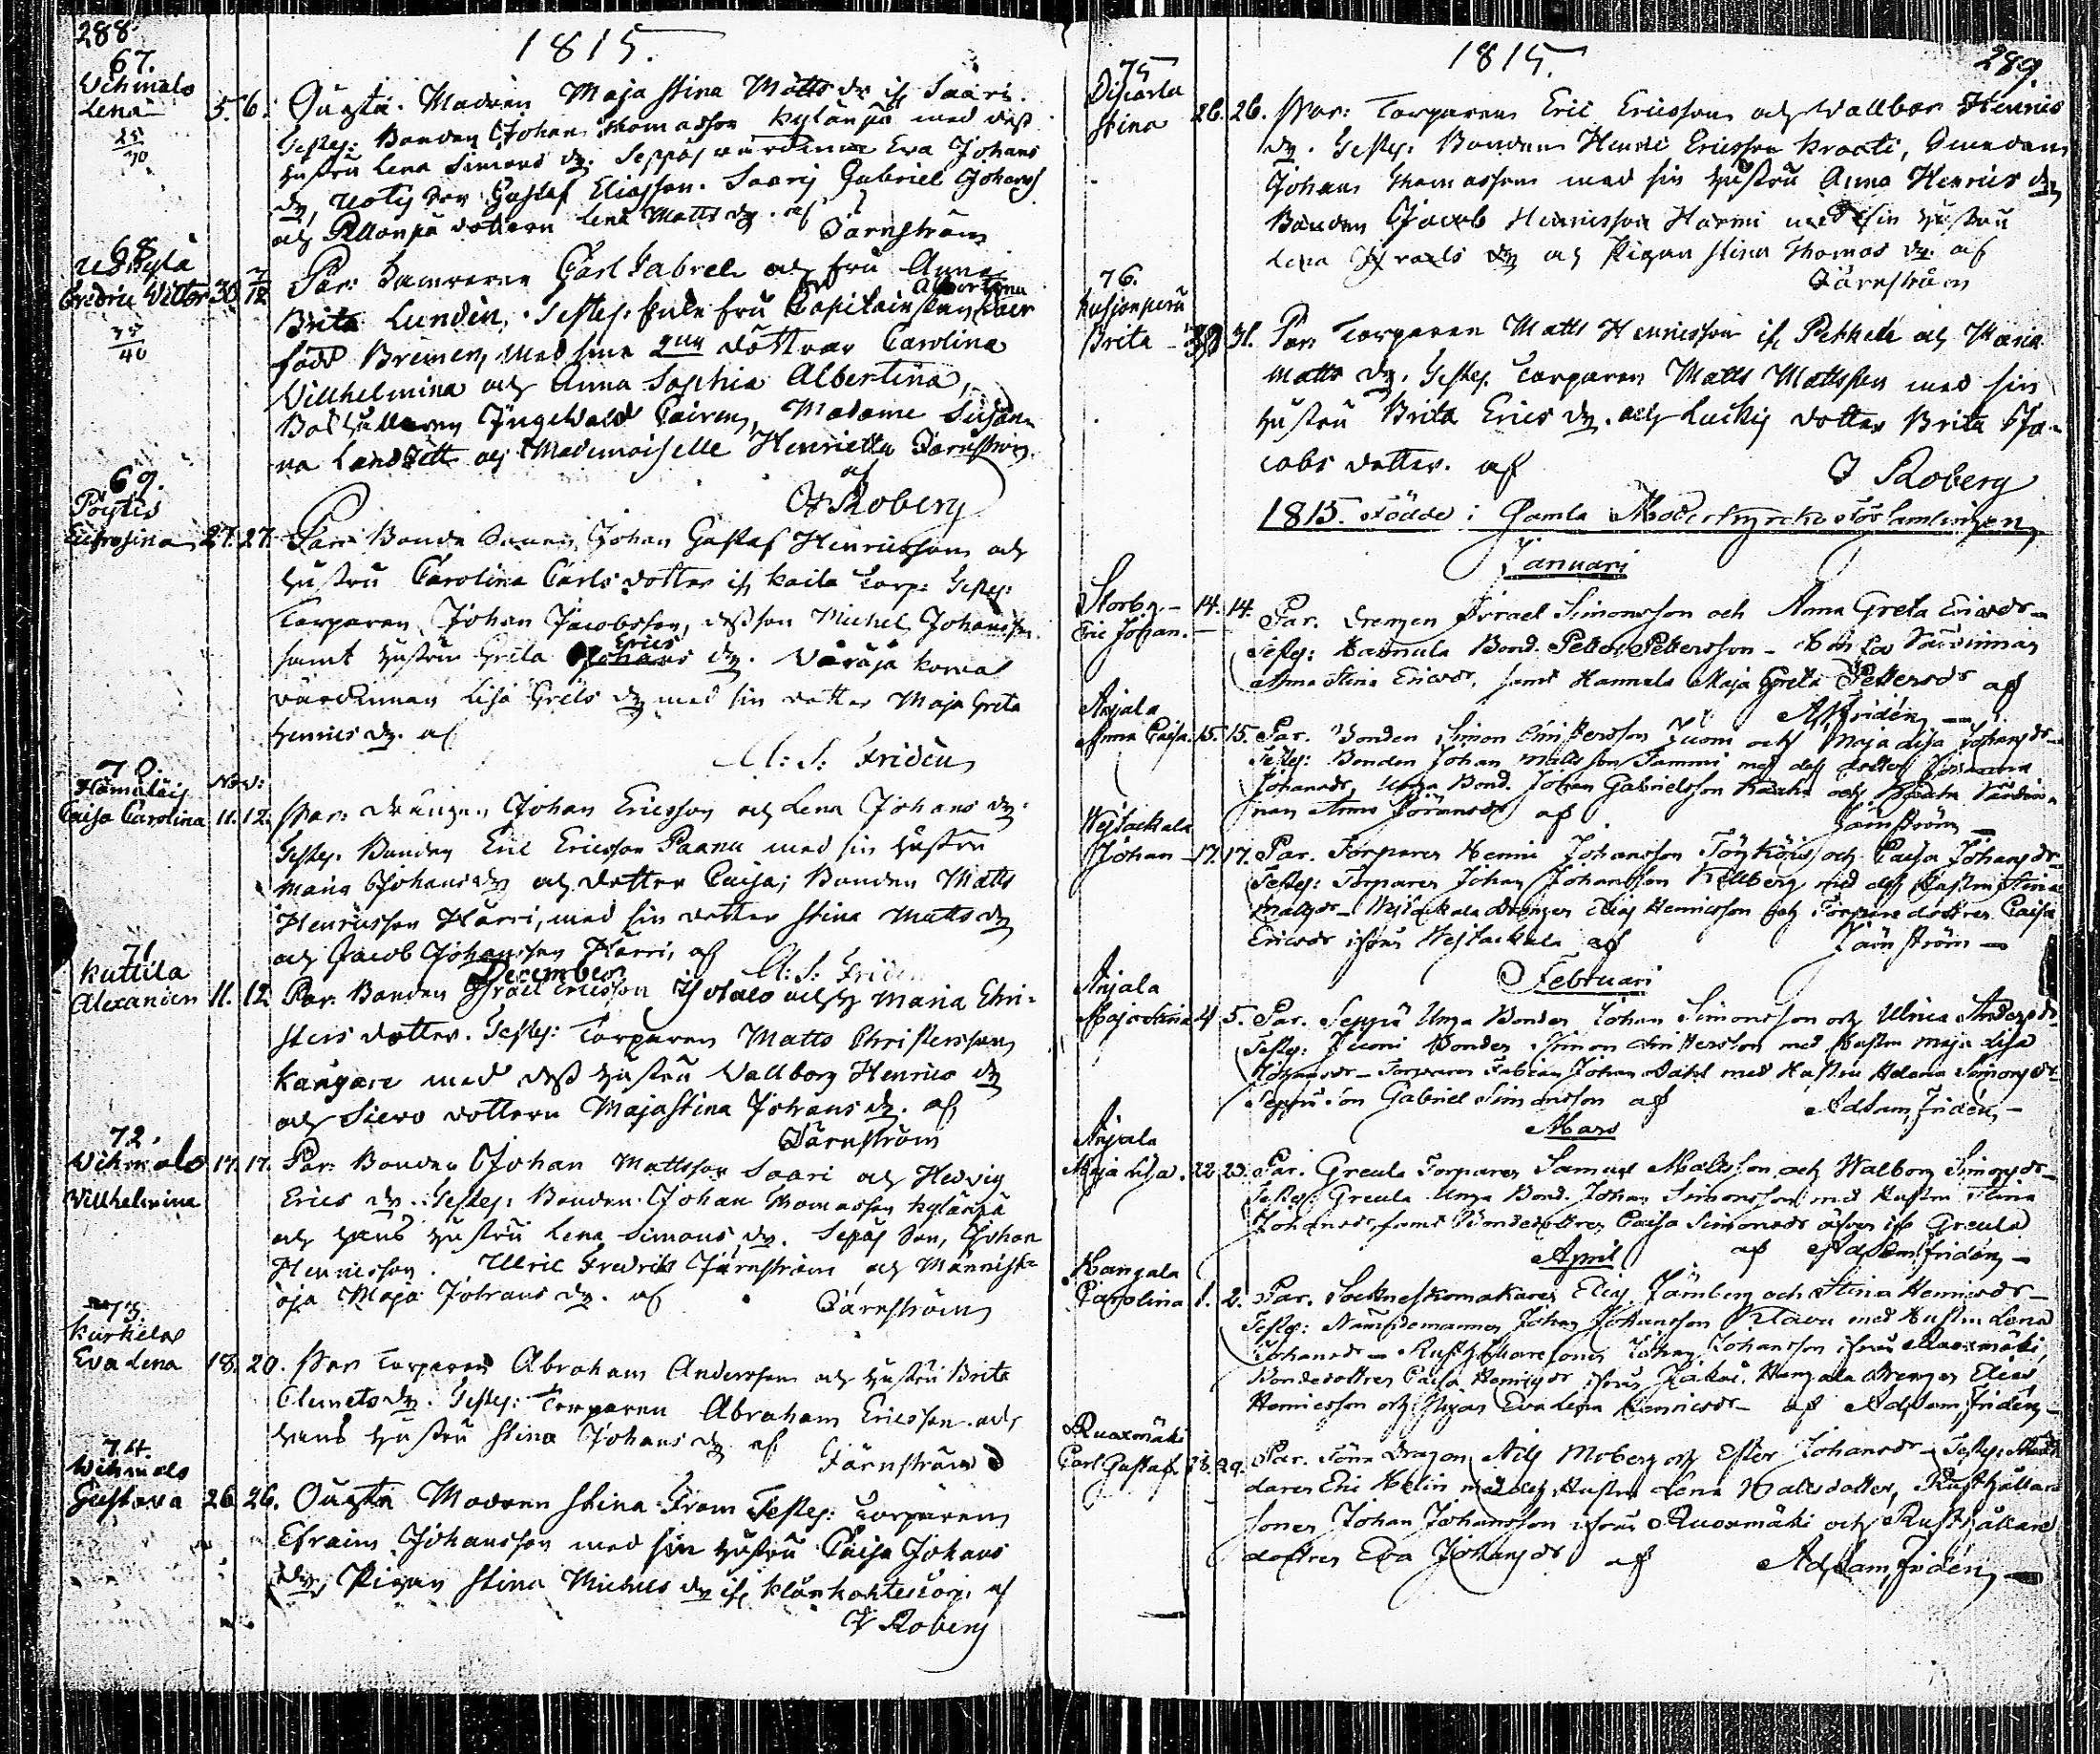 288.
1815.
67.
Wihmalo
Lena
25
30
5. 6. Ouägta. Madren Maja Stina Matts dr ifr Saari.
Testes: Bonden Johan Thomasson Kylänpä med dess
hustru Lena Simons dr. Seppäs värdinna Eva Johans
dr, Son Gustaf Eliasson. Saaris Gabriel Johans
och dottern Lena Matts dr. af Järnström
68
Fredric Victor 30
35
40
Par: Carl Fabrel och Fru Anna
Albertina
Brita Lundén. Testes: Fru Capitainskan
född Bremen, med sina 2ne döttrar Carolina
Wilhelmina och Anna Sophia Albertina,
Bokhållaren Ingewald Cairen, Madame Susan-
na Landzett och Mademoiselle Henrietta Järnström.
af
J Roberg
69.
Pöytis
Eufrosina 27. 27. Par: Bonde Sonen Johan Gustaf Henricsson och
hustru Carolina Carls dotter ifr Kaila Torp: Testes:
Torparen Johan Jacobsson, dess son Michel Johansson
samt hustrun Greta Johans Erics dr. Wäräjä
värdinnan Lisa Grels dr med sin dotter Maja Greta
Henrics dr. af
A: S: Fridén
70.
Nov:
Caisa Carolina 11. 12. Par: Drängen Johan Ericsson och Lena Johans dr:
Testes. Bonden Eric Ericsson Paanu med sin hustru
Maria Johans dr och dotter Caisa; Bonden Matts
Henricsson Harri, med sin dotter Stina Matts dr
och Jacob Johansson Harri, af A: S: Fridén
December
71
Kuttila
Alexander 11. 12 Par: Bonden Israel Ericsson Isotalo och h Maria Chri-
sters dotter. Testes: Torparen Matts Christersson
Kangare med dess hustru Wallborg Henrics dr
och Siero dottern Maja Stina Johans dr. af
Järnström
72.
Wihmalo 17. 17. Par: Bonden Johan Mattsson Saari och Hedvig
Willhelmina
Erics dr. Testes: Bonden Johan Thomasson Kylänpä
och hans hustru Lena Simons dr. Sepäs Son, Johan
Henricsson. Ulric Fredric Järnström och Männist-
öja Maja Johans dr. af Järnström
73.
Kurkelas
Eva Lena 18. 20. Par Torparen Abraham Andersson och hustru Brita
Clemets dr. Testes: Torparen Abraham Ericsson och
hans hustru Stina Johans dr af Järnström
74.
Wihmalo
Gustava 26 26. Ouägta Modren Stina From Testes: Torparen
Efraim Johansson med sin hustru Caisa Johans
dr, Pigan Stina Michels dr ifr af
J Roberg
1815.
289.
75
Stina 26. 26. Par: Torparen Eric Ericsson och Wallbor Henrics
dr. Testes: Bonden Henric Ericsson Kraati, Smeden
Johan Thomasson med sin hustru Anna Henrics dr
Bonden Jacob Henricsson Harmi med sin hustru
Lena Israels dr och Pigan Stina Thomas dr. af
Järnström
76.
Brita 31. Par Torparen Matts Henricsson ifr Pekkela och Maria
Matts dr. Testes. Torparen Matts Mattsson med sin
hustru Brita Erics dr. och Luckis dotter Brita Ja-
cobs dotter. af J Roberg
1815. Födde i Gamla Moderkyrko Församlingen
Januari
Storby - 14. 14. Par. Drengen Israel Simonsson och Anna Greta Ericsdr -
Eric Johan.
Testes: Hannula Bond. Petter Pettersson - Värdinnan
Anna Stina Ericsdr, samt Hannula Maja Greta Pettersdr af
A S Fridén
Anjala
Anna Caisa. 15. 15. Par. Bonden Simon Christersson Juoni och Maja Lisa Johansdr
Testes: Bonden Johan Mattsson Tammi med dess dotter Johanna
Johansdr, Unga Bond. Johan Gabrielsson och Värdin-
nan Anna Göransdr af Järnström
Wejlackala
Johan - 17. 17. Par. Torparen Henric Johansson och Caisa Johansdr
Testes: Torparen Johan Johansson Källberg med dess Hustru Stina
Mattsdr - Wejlackala Drengen Elias Henricsson och Torpare dottren Caisa
Ericsdr ifrån Wejlackala af Järnström
Februari
Anjala
Maja Stina 4 5. Par. Seppä Unga Bonden Johan Simonsson och Ulrica Andersdr
Testes: Juoni Bonden Simon Christersson med Hustru Maja Lisa
Johansdr - Torparen Fabian Johan Dahl med Hustru Helena Simonsdr
Seppä Son Gabriel Simonsson af Ad Sam Fridén -
Mars
Anjala
Maja Lisa. 22 23. Par. Greula Torparen Samuel Mattsson och Walborg Simonsdr
Testes: Greula Unga Bond. Johan Simonsson med Hustru Stina
Johansdr, samt Bondedottren Caisa Simonsdr äfven ifr Greula
af Ad Sam Fridén -
April
Hangala
Carolina 1. 2. Par. Sockneskomakaren Elias Jämberg och Stina Henricsdr -
Testes: Nämndemannen Johan Johansson Klavu med Hustru Lena
Johansdr - Rusthållaresonen Johan Johansson ifrån Ruoxmäki,
Bondedottren Caisa Henricsdr ifrån Hangala Drengen Elias
Henricsson och Pigan Eva Lena Henricsdr - af Ad Sam Fridén -
Ruoxmäki
Carl Gustaf 28. 29. Par. Dragon Nils Moberg och Ester Johansdr - Testes:
daren Eric Helin med dess Hustru Lena Mattsdotter, Rusthållare
sonen Johan Johansson ifrån Ruoxmäki och Rusthållare
dottren Eva Johansdr af Ad Sam Fridén -